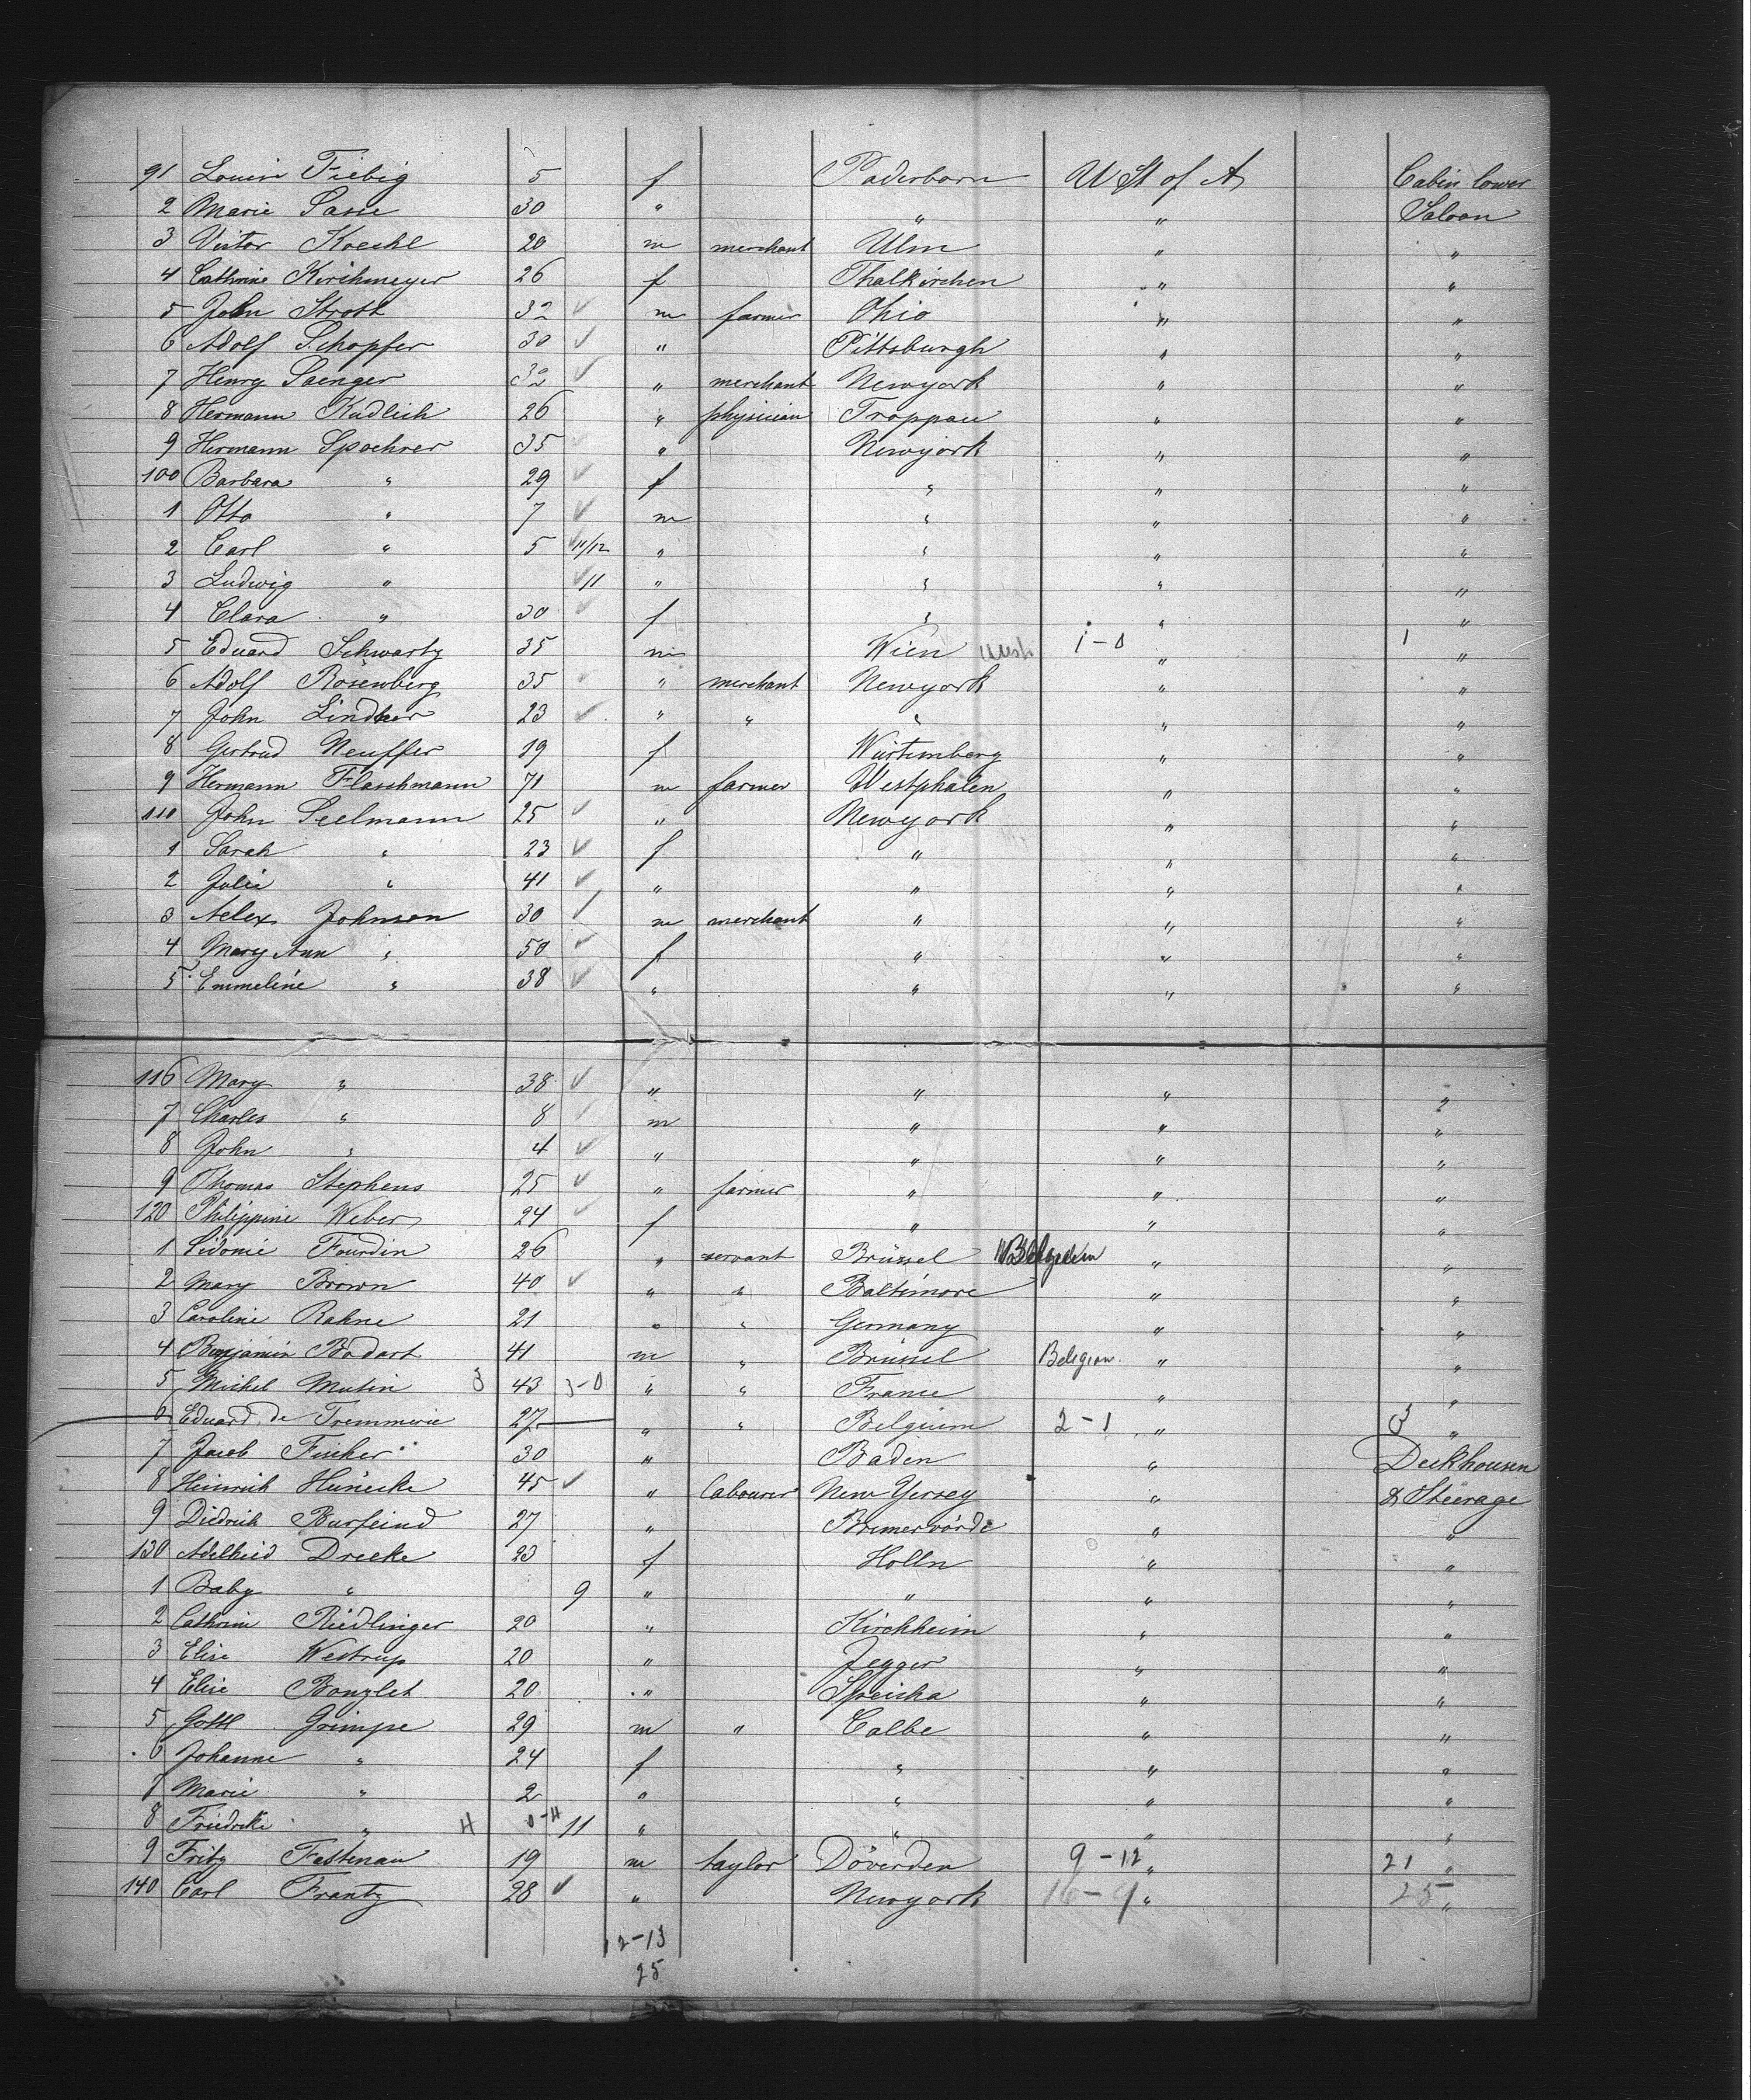 91 Louise Fiebig 5 f Paderborn U St of A Cabin lower
2 Marie Sasse 30 " " " Saloon
3 Victor Koechl 20 m merchant Ulm " "
4 Cathrine Kirchmeyer 26 f Thalkirchen " "
5 John Strott 32 ✓ m farmer Ohio " "
6 Adolf Schopfer 30 ✓ " Pittsburgh " "
7 Henry Saenger 32 ✓ " merchant Newyork " "
8 Hermann Kudlich 26 " physician Troppau " "
9 Hermann Spoehrer 35 ✓ " Newyork " "
100 Barbara " 29 ✓ f " " "
1 Otto " 7 ✓ m " " "
2 Carl " 5 ✓ 11/12 " " " "
3 Ludwig " ✓ 11 " " " "
4 Clara " 30 ✓ f " " "
5 Eduard Schwartz 35 m Wien 1-0 " 1 "
6 Adolf Rosenberg 35 ✓ " merchant Newyork " "
7 John Lindner 23 ✓ " " " " "
8 Gertrud Neuffer 19 f Würtemberg " "
9 Hermann Flaschmann 71 m farmer Westphalen " "
110 John Seelmann 25 ✓ " Newyork " "
1 Sarah " 23 ✓ f " " "
2 Julie " 41 ✓ " " " "
3 Aelex Johnson 30 ✓ m merchant " " "
4 Mary Ann " 50 ✓ f " " "
5 Emmeline " 38 ✓ " " " "
116 Mary " 38 ✓ " " " "
7 Charles " 8 ✓ m " " "
8 John " 4 ✓ " " " "
9 Thomas Stephens 25 ✓ " farmer " " "
120 Philippine Weber 24 ✓ f " " "
1 Sidonie Fourdin 26 " servant Brüssel Belgien " "
2 Mary Brown 40 ✓ " " Baltimore " "
3 Caroline Rahne 21 " " Germany " "
4 Benjamin Bodart 41 m " Brüssel Belgian " "
5 Michel Mutin 3 43 3-0 " " France " "
6 Eduard de Tremmerie 27 " " Belgium 2-1 " 3 "
7 Jacob Fincher 30 " Baden " Deckhousen
8 Heinrich Hünecke 45 ✓ " labourer New Yersey " & Steerage
9 Diedrich Burfeind 27 " Bremervörde " "
130 Adelheid Drecke 23 f Holln " "
1 Baby " 9 " " " "
2 Cathrine Riedlinger 20 " Kirchheim " "
3 Elise Westrup 20 " Jegger " "
4 Elise Bonzlet 20 " Speicha " "
5 Gottl Grimpe 29 m " Calbe " "
6 Johanne " 24 f " " "
7 Marie " 2 " " " "
8 Friedrike " 4 0-4 11 " " " "
9 Fritz Fastenau 19 m taylor Döverden 9-12 " 21 "
140 Carl Frantz 28 ✓ " Newyork 16-9 " 25 "
12-13
25